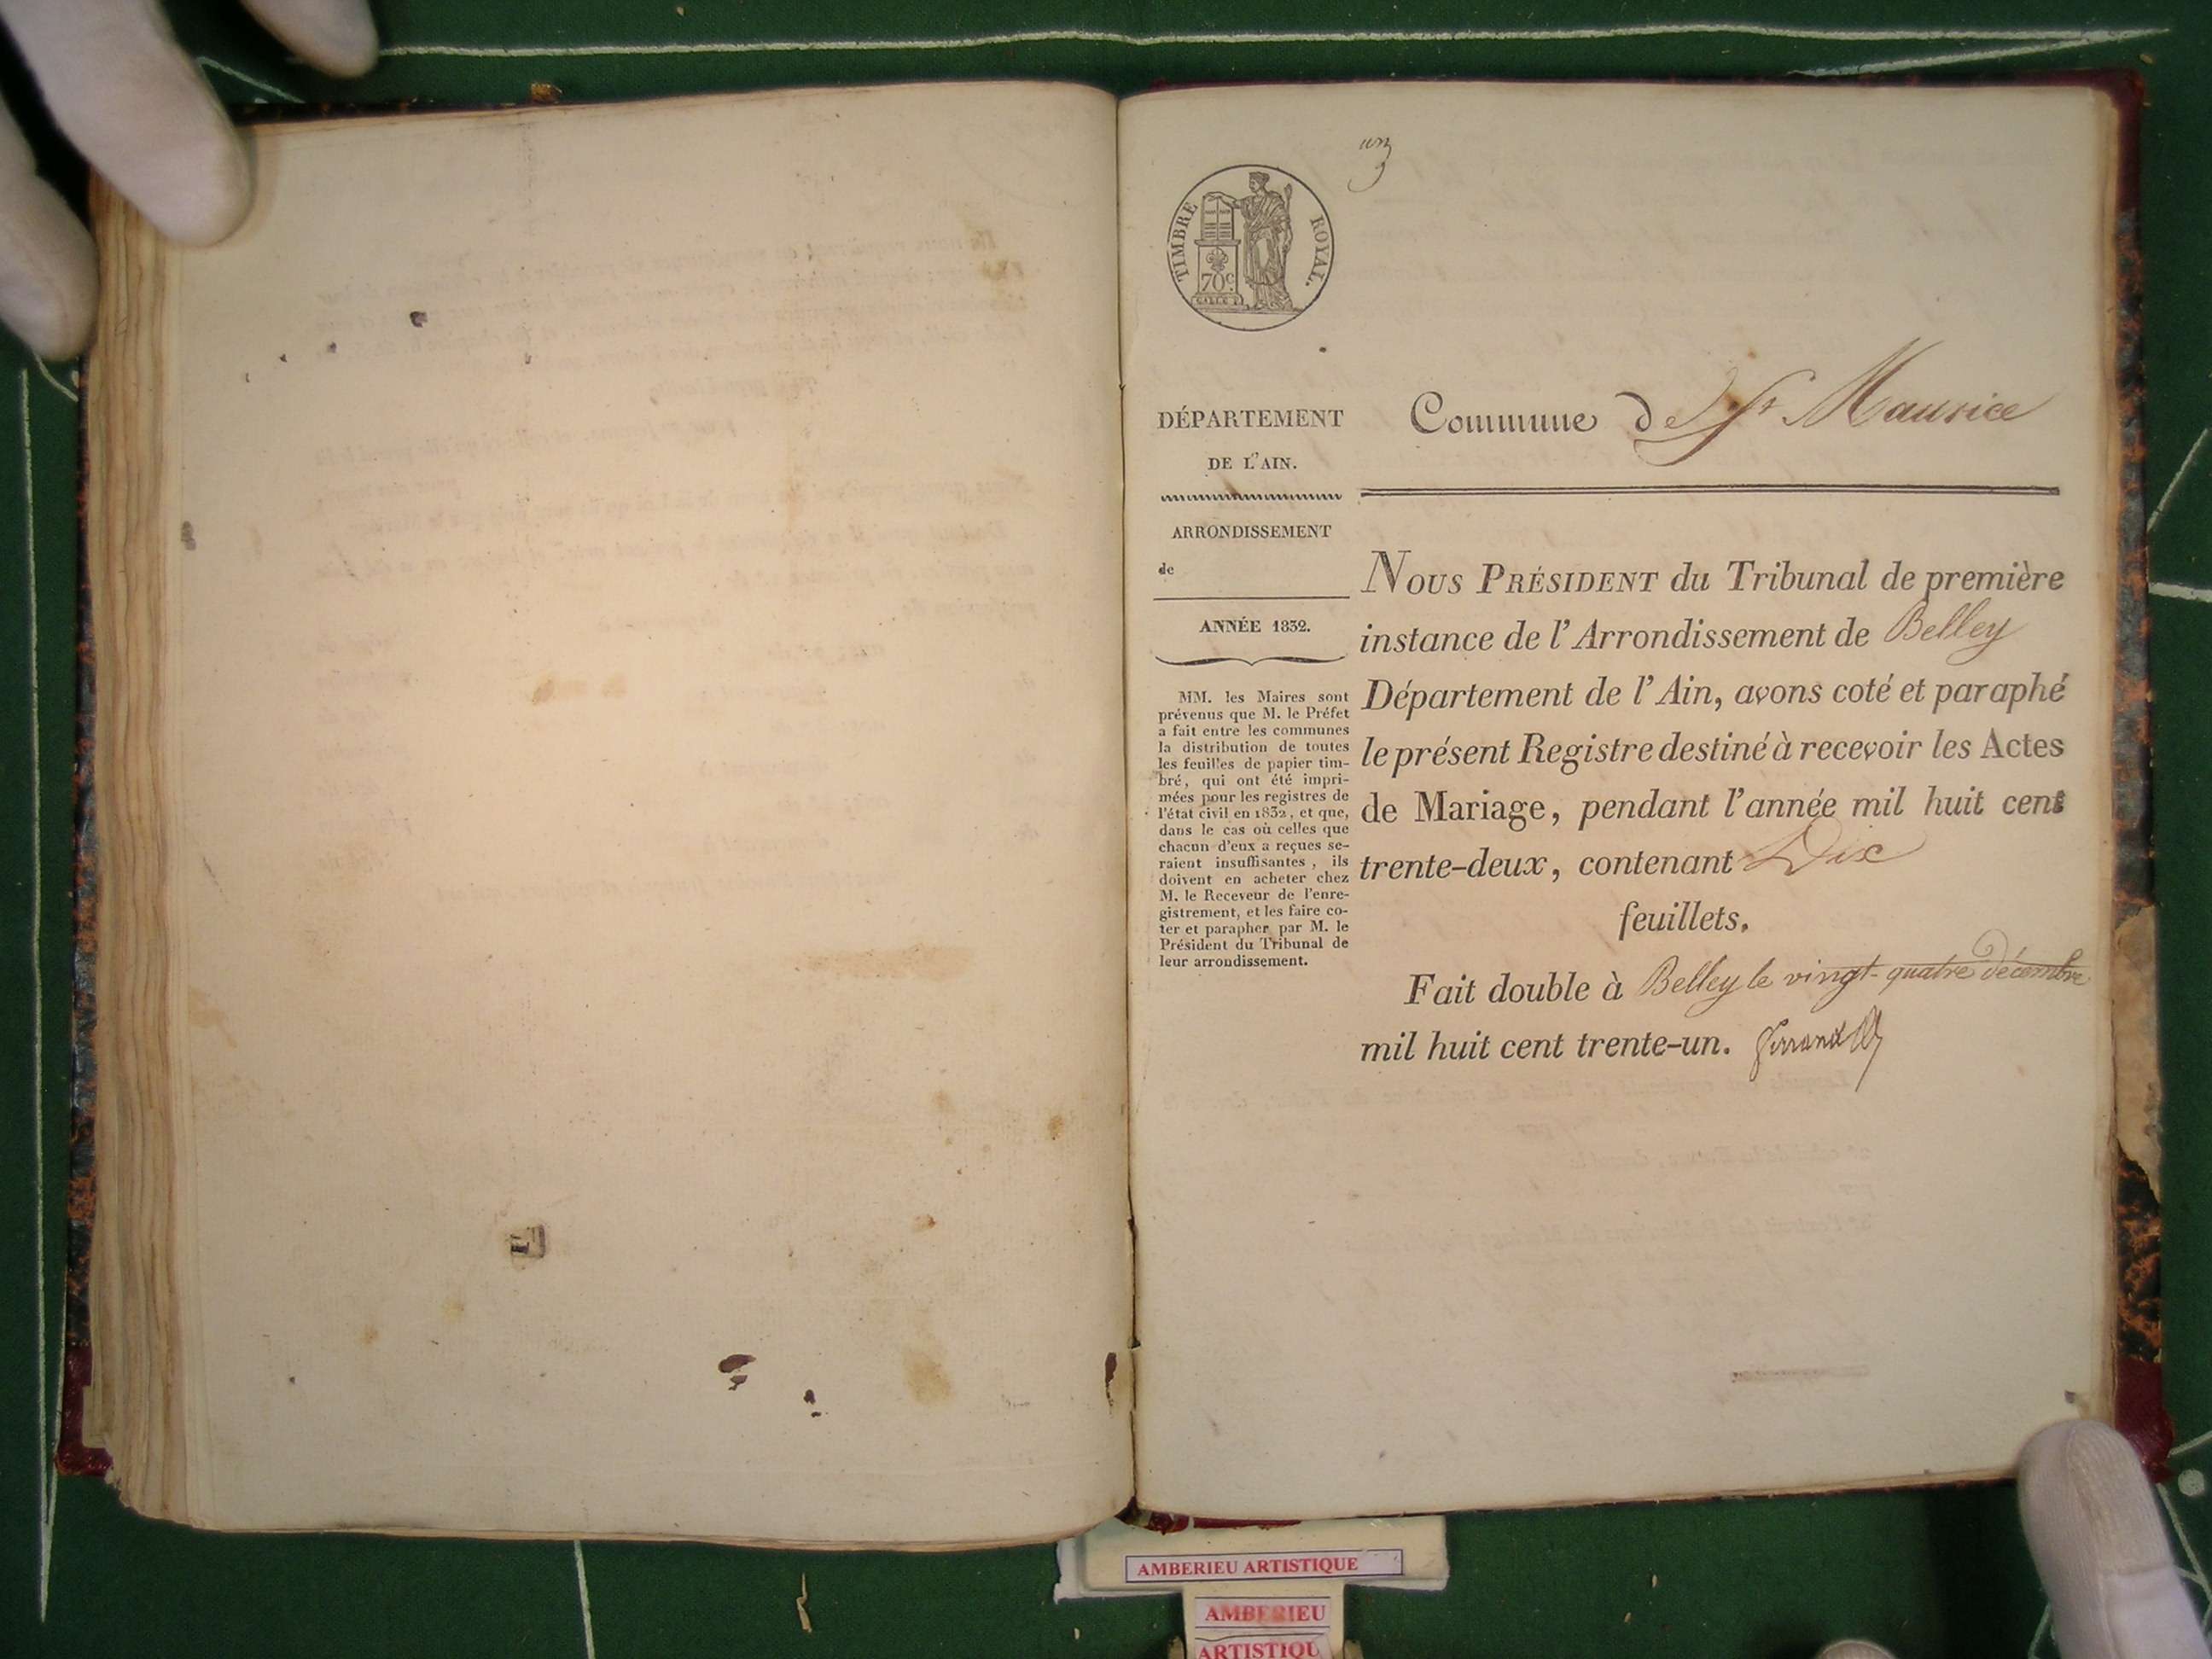 un
TIMBRE ROYAL.
70c
DÉPARTEMENT
DE L'AIN.
ARRONDISSEMENT
de
ANNÉE 1832.
MM. les Maires sont
prévenus que M. le Préfet
a fait entre les communes
la distribution de toutes
les feuilles de papier tim-
bré, qui ont été impri-
mées pour les registres de
l'état civil en 1832, et que,
dans le cas où celles que
chacun d'eux a reçues se-
raient insuffisantes, ils
doivent en acheter chez
M. le Receveur de l'enre-
gistrement, et les faire co-
ter et parapher par M. le
Président du Tribunal de
leur arrondissement.
Commune de St Maurice
NOUS PRÉSIDENT du Tribunal de première
instance de l'Arrondissement de Belley
Département de l'Ain, avons coté et paraphé
le présent Registre destiné à recevoir les Actes
de Mariage, pendant l'année mil huit cent
trente-deux, contenant Dix
feuillets.
Fait double à Belley le vingt-quatre décembre
mil huit cent trente-un.
AMBERIEU ARTISTIQUE
AMBERIEU
ARTISTIQU